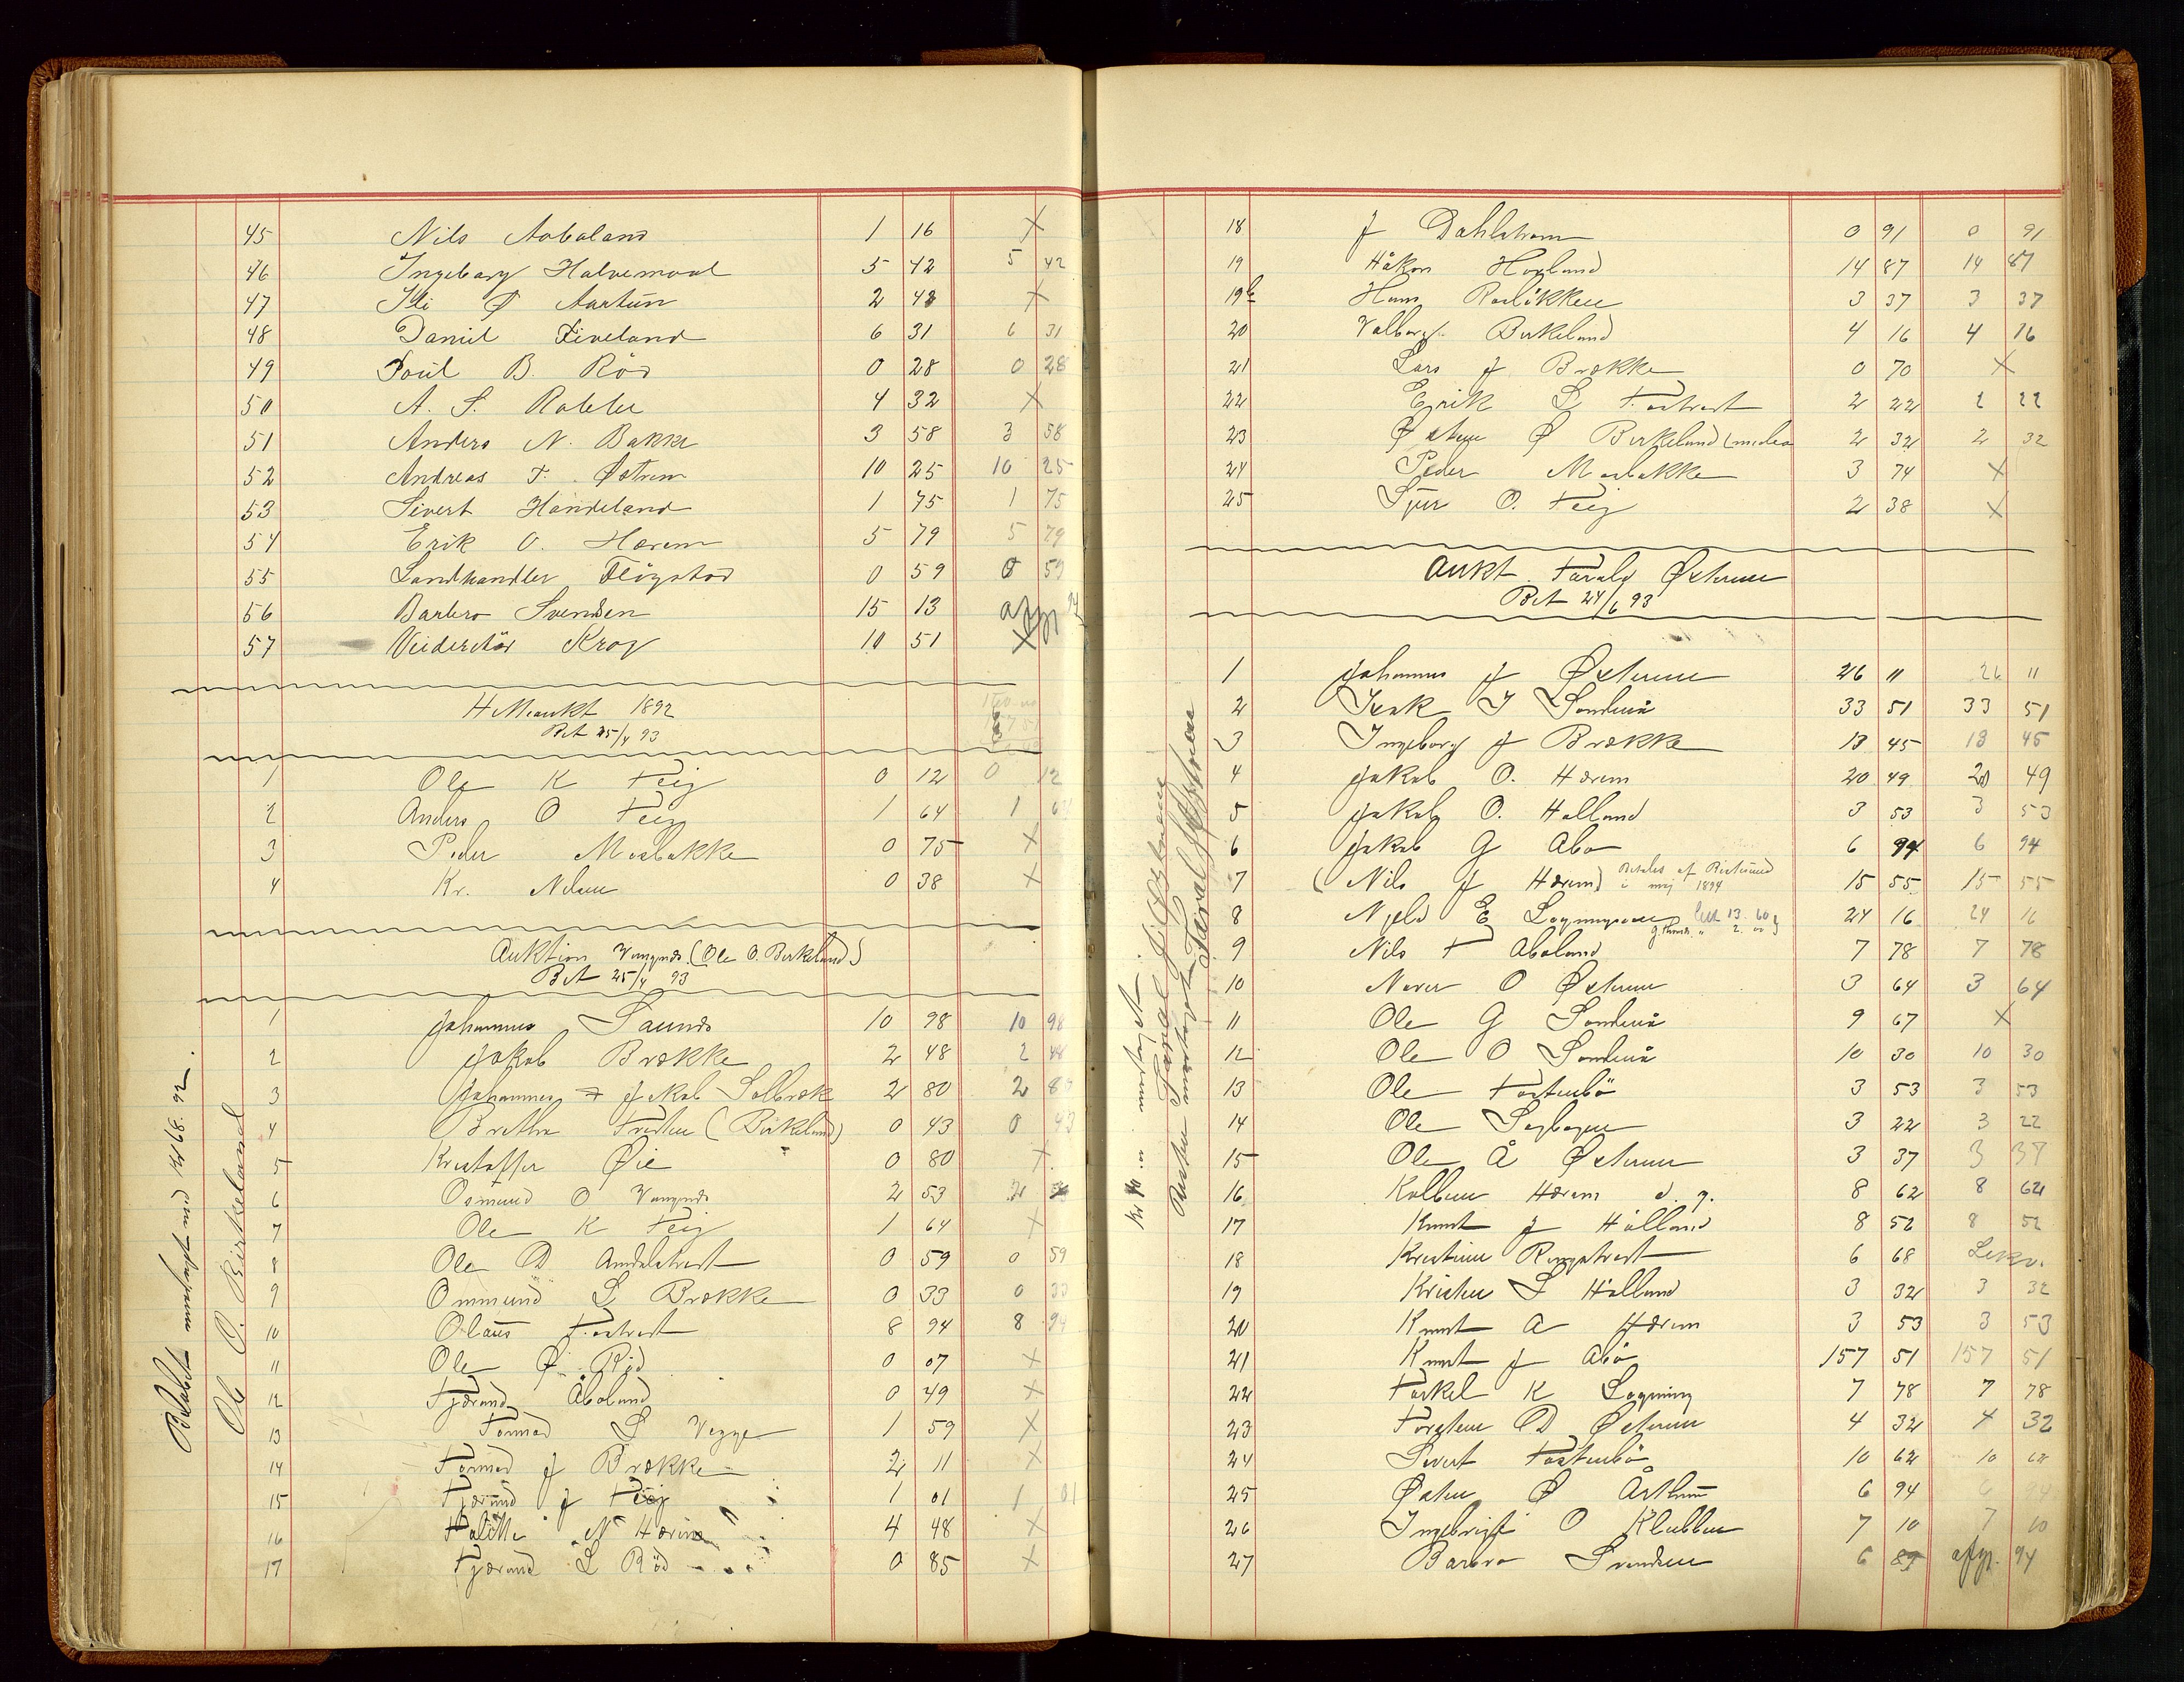 45 Nils Aabaland 1 16 X
46 Ingeborg Halvemoal 5 42 5 42
47 Ili Ø Aartun 2 48 X
48 Daniel Fiveland 6 31 6 31
49 Poul B. Röd 0 28 0 28
50 A. S. 4 32 X
51 Anders N. Bakke 3 58 3 58
52 Andreas T. Østrem 10 25 10 25
53 Sivert Handeland 1 75 1 75
54 Erik O. Hærem 5 79 5 79
55 Landhandler Flögstad 0 59 0 59
56 Barbro Svendsen 15 13 afgj 94
57 Krog 10 51 X
1892
Bet 25/4 93
1 Ole K Feig 0 12 0 12
2 Anders O Feig 1 64 1 64
3 Peder Mosbakke 0 75 X
4 Kr. Nilsen 0 38 X
Auktion (Ole O. Birkeland)
Bet 25/4 93
1 Johannes 10 98 10 98
2 Jakob Brække 2 48 2 48
3 Johannes Jakob Solbræk 2 80 2 80
4 Brethe (Birkeland) 0 43 0 43
5 Kristoffer Øie 0 80 X
6 Osmund O 2 53 2
7 Ole K Feig 1 64 X
8 Ole D 0 59 0 59
9 Ommund L Brække 0 33 0 33
10 Olaus Fastvedt 8 94 8 94
11 Ole Ø. Röd 0 07 X
12 Tjærand Åboland 0 49 X
13 Tormod S 1 59 X
14 Tormod J Brække 2 11 X
15 Tjærand J Feig 1 01 1 01
16 N Hærem 4 48 X
17 Tjærand L Röd 0 85 X
Beløbet modtaget med Kr 68.92.
Ole O. Birkeland
18 J Dahlstrøm 0 91 0 91
19 Håkon Hogland 14 87 14 87
19b Hans 3 37 3 37
20 Valborg Birkeland 4 16 4 16
21 Lars J Brække 0 70 X
22 Erik L Fastvedt 2 22 2 22
23 Østen Ø Birkeland 2 32 2 32
24 Peder Mosbakke 3 74 X
25 Sjur O. Feig 2 38 X
Aukt. Tarald Østrem
Bet 24/6 93
1 Johannes J Østrem 26 11 26 11
2 Isak I 33 51 33 51
3 Ingeborg J Brække 13 45 13 45
4 Jakob O. Hærem 20 49 20 49
5 Jakob O. Halland 3 53 3 53
6 Jakob G Abø 6 94 6 94
7 (Nils J Hærem) Betales af i maj 1894 15 55 15 55
8 E 13. 60 24 16 24 16
2. 00
9 Nils T Aboland 7 78 7 78
10 O Østrem 3 64 3 64
11 Ole G 9 67 X
12 Ole O 10 30 10 30
13 Ole Fosterbö 3 53 3 53
14 Ole 3 22 3 22
15 Ole Å Østrem 3 37 3 37
16 Kolben Hærem d. y. 8 62 8 62
17 Knut J Hålland 8 52 8 52
18 Kristine 6 68
19 Kristen S Hålland 3 32 3 32
20 Knut A Hærem 3 53 3 53
21 Knut J Abö 157 51 157 51
22 Torkel K Løgning 7 78 7 78
23 Torsten D Østrem 4 32 4 32
24 Sivert Fosterbö 10 62 10 62
25 Østen Ø Årthun 6 94 6 94
26 Ingebrigt O Klubben 7 10 7 10
27 Barbro Svendsen 6 89 afgj. 94
modtaget.
Tarald J. Østrem
Resten modtaget Tarald J Østrem